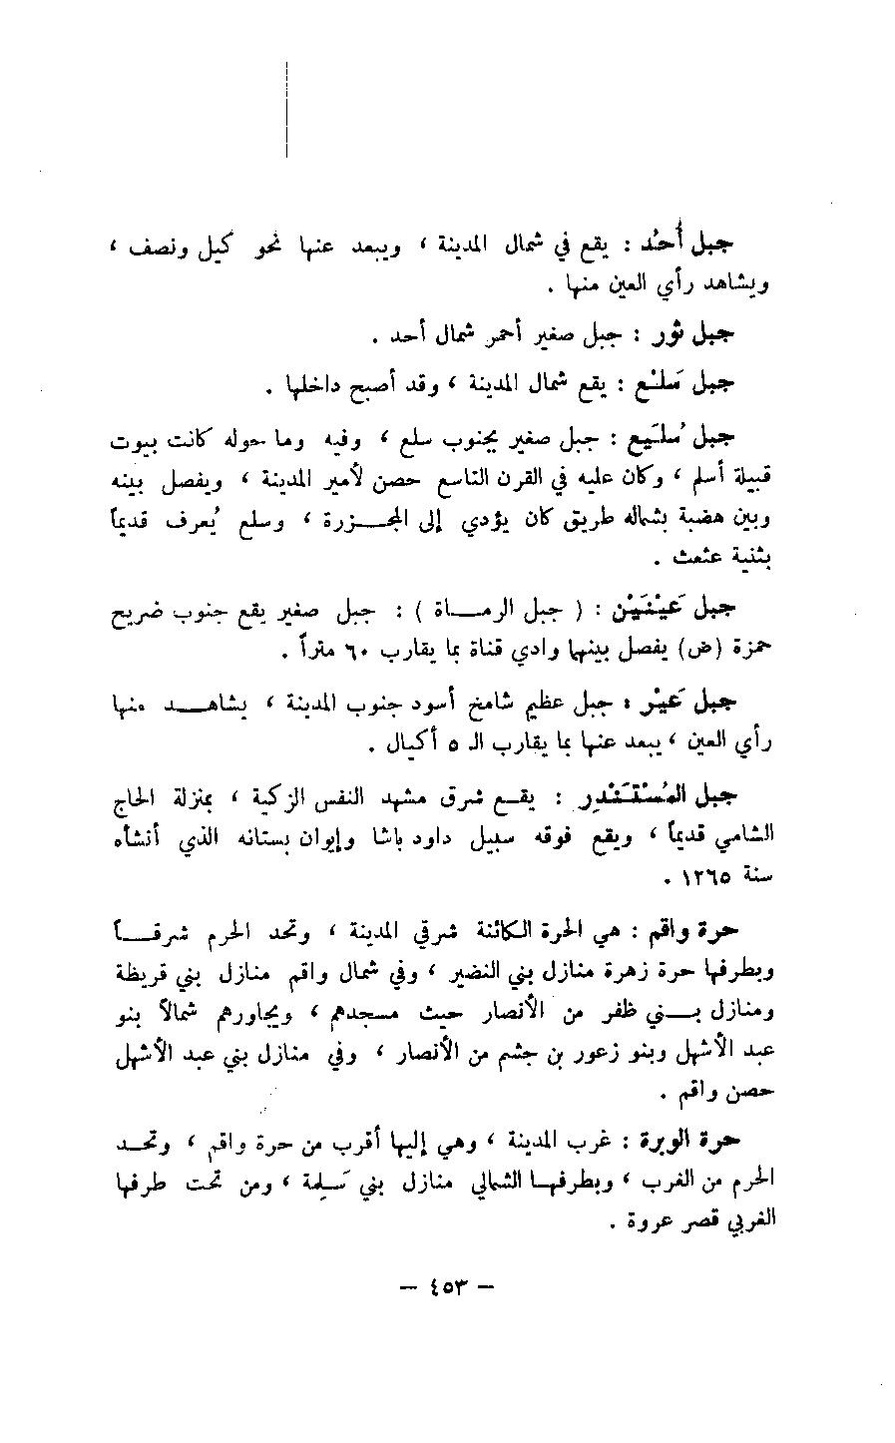 جبل أُحُد : يقع في شمال المدينة ، ويبعد عنها نحو كيل ونصف ،
ويشاهد رأي العين منها .
جبل ثور : جبل صغير أحمر شمال أحد .
جبل سَلْع : يقع شمال المدينة ، وقد أصبح داخلها .
جبل سُلَيع : جبل صغير بجنوب سلع ، وفيه وما حوله كانت بيوت
قبيلة أسلم ، وكان عليه في القرن التاسع حصن لأمير المدينة ، ويفصل بينه
وبين هضبة بشماله طريق كان يؤدي إلى المجـــزرة ، وسلع يُعرف قديماً
بثنية عثعث .
جبل عَيْنَيْن : ( جبل الرمـــاة ) : جبل صغير يقع جنوب ضريح
حمزة (ض) يفصل بينها وادي قناة بما يقارب ٦٠ متراً .
جبل عَيْر : جبل عظيم شامخ أسود جنوب المدينة ، يشاهـــد منها
رأي العين ، يبعد عنها بما يقارب الـ ٥ أكيال .
جبل المُسْتَنْدِر : يقـع شرق مشهد النفس الزكية ، بمنزلة الحاج
الشامي قديماً ، ويقع فوقه سبيل داود باشا وإيوان بستانه الذي أنشأه
سنة ١٢٦٥ .
حرة واقم : هي الحرة الكائنة شرقي المدينة ، وتحد الحرم شرقـــاً
وبطرفها حرة زهرة منازل بني النضير ، وفي شمال واقم منازل بني قريظة
ومنازل بـــني ظفر من الأنصار حيث مسجدهم ، ويجاورهم شمالاً بنو
عبد الأشهل وبنو زعور بن جشم من الأنصار ، وفي منازل بني عبد الأشهل
حصن واقم .
حرة الوبرة : غرب المدينة ، وهي إليها أقرب من حرة واقم ، وتحـد
الحرم من الغرب ، وبطرفهـا الشمالي منازل بني سَـلِمة ، ومن تحت طرفها
الغربي قصر عروة .
— ٤٥٣ —